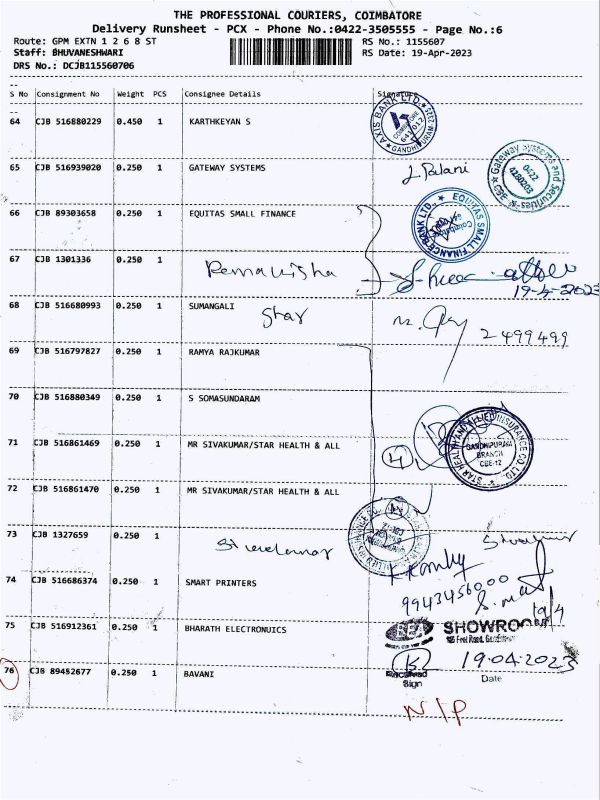 THE PROFESSIONAL COURIERS, COIMBATORE
Delivery Runsheet - PCX - Phone No.:0422-3505555 - Page No.:6
Route: GPM EXTN 1 2 6 8 ST RS No.: 1155607
Staff: BHUVANESHWARI RS Date: 19-Apr-2023
DRS No.: DCJB115560706
S No Consignment No Weight PCS Consignee Details Signature
64 CJB 516880229 0.450 1 KARTHKEYAN S
AXIS BANK LTD. COIMBATORE 641 012 GANDHIPURAM
65 CJB 516939020 0.250 1 GATEWAY SYSTEMS
Gateway Systems and Securities 0422 4280203 CBE
66 CJB 89303658 0.250 1 EQUITAS SMALL FINANCE
EQUITAS SMALL FINANCE BANK LTD. Coimbatore
67 CJB 1301336 0.250 1
19-4-2023
68 CJB 516680993 0.250 1 SUMANGALI
Star
2499499
69 CJB 516797827 0.250 1 RAMYA RAJKUMAR
70 CJB 516880349 0.250 1 S SOMASUNDARAM
71 CJB 516861469 0.250 1 MR SIVAKUMAR/STAR HEALTH & ALL
4
GANDHIPURAM BRANCH CBE-12
72 CJB 516861470 0.250 1 MR SIVAKUMAR/STAR HEALTH & ALL
73 CJB 1327659 0.250 1
74 CJB 516686374 0.250 1 SMART PRINTERS
9943456000
19/4
75 CJB 516912361 0.250 1 BHARATH ELECTRONUICS
SHOWROOM
76 CJB 89452677 0.250 1 BAVANI
19.04.2023
Received Sign Date
N/P